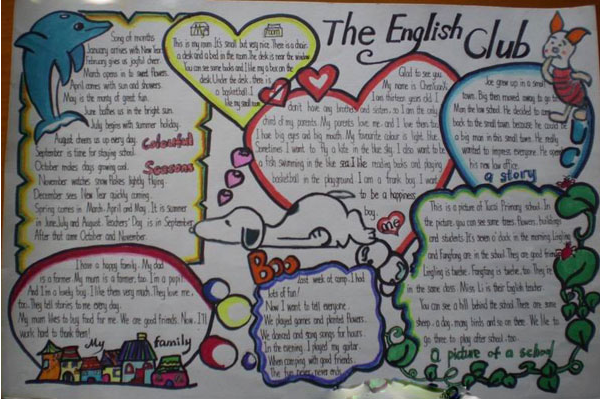 The English Club
Song of months
January arrives with New Year
February gives us joyful cheer.
March opens in to sweet flowers.
April comes with sun and showers.
May is the monty of great fun.
June bathes us in the bright sun.
July begins with summer holiday.
August cheers us up every day.
September is time for staying school.
October makes days growing cool.
November watches snow flakes lightly flying.
December sees New Year quickly coming.
Spring comes in March, April and May. It is summer
in June, July and August. Teachers' Day is in September
After that come October and November.
Colourful
Seasons
My
room
This is my room. It's small but very nice. There is a chair
a desk and a bed in the room. The desk is near the window
You can see some books and I like my a box on the
desk. Under the desk, there is
a basketball. I
like my small room
Glad to see you
My name is
I am thirteen years old. I
don't have any brothers and sisters, so I am the only
child of my parents. My parents love me, and I love them too.
I have big eyes and big mouth. My favourite colour is light blue.
Sometimes I want to fly a kite in the blue sky. I also want to be
a fish swimming in the blue sea. I like reading books and playing
basketball in the playground. I am a frank boy. I want
to be a happiness
boy.
me
Joe grew up in a small
town. Big then moved away to go to
Man the law school. He decided to come
back to the small town, because he could be
a big man in this small town. He really
wanted to impress everyone. He opened
his new law office.
a story
I have a happy family. My dad
is a farmer. My mum is a farmer, too. I'm a pupil
And I'm a lovely boy. I like them very much. They love me,
too. They tell stories to me every day.
My mum likes to buy food for me. We are good friends. Now, I'll
work hard to thank them!
My family
Boo
Last week at camp, I had
lots of fun!
Now I want to tell everyone
We played games and planted flowers.
We danced and sang songs for hours
In the evening, I played my guitar
When camping with good friends
The fun never, never ends
This is a picture of Primary school. In
the picture, you can see some trees, flowers, buildings
and students. It's seven o' clock in the morning. Lingling
and Fangfang are in the school. They are good friends.
Lingling is twelve. Fangfang is twelve, too. They're
in the same class. Miss Li is their English teacher.
You can see a hill behind the school. There are some
sheep, a dog, many birds and so on there. We like to
go there to play after school, too.
a picture of a school